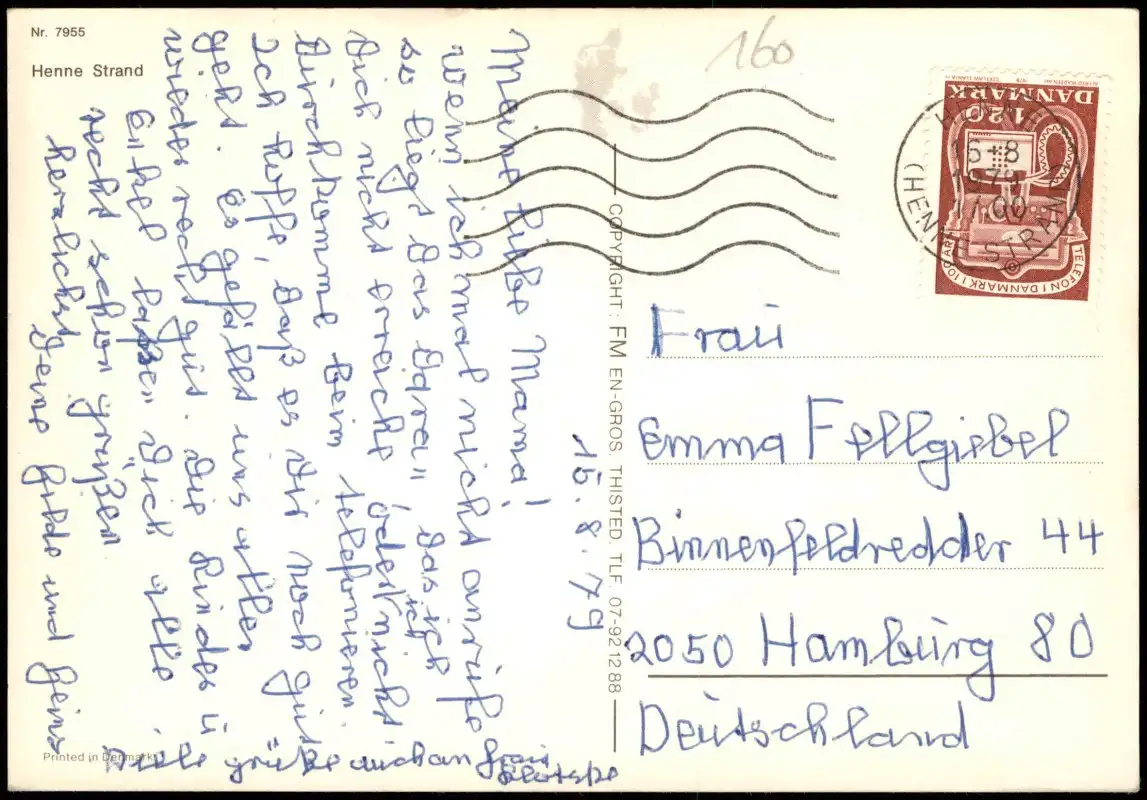 Nr. 7955
Henne Strand
160
15.8.79
Meine liebe Mama!
Wenn ich mal nicht anrufe
so liegt das daran das ich
Dich nicht erreicht oder ich nicht
Dürchkomme beim telefonieren.
Ich hoffe, daß es Dir noch gut
geht. Es gefällt uns allen
wieder recht gut. Die Kinder ü.
Enkel laßen Dich alle
recht schön grüßen.
Herzlichst Deine Hilde und Heinz
Viele grüße auch an Frau
COPYRIGHT: FM EN-GROS. THISTED. TLF. 07-92 12 88
Printed in Denmark
DANMARK
120
TELEFON I DANMARK I 100 ÅR
HENNE
16-8
1979
17.00
(HENNE STRAND)
Fraü
Emma Fellgiebel
Binnenfeldredder 44
2050 Hambürg 80
Deütschland